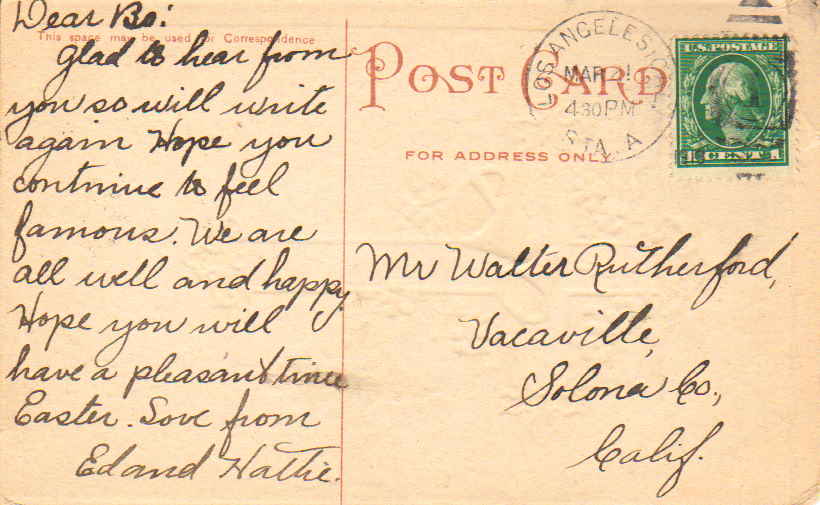 Dear Bo:
This space may be used for Correspondence
Glad to hear from
you so will write
again Hope you
continue to feel
famous. We are
all well and happy.
Hope you will
have a pleasant time
Easter. Love from
Ed and Hattie.
POST CARD
FOR ADDRESS ONLY
LOS ANGELES
MAR 21
430 PM
STA. A
U.S. POSTAGE
1 CENT 1
Mr Walter Rutherford,
Vacaville,
Solona Co.,
Calif.